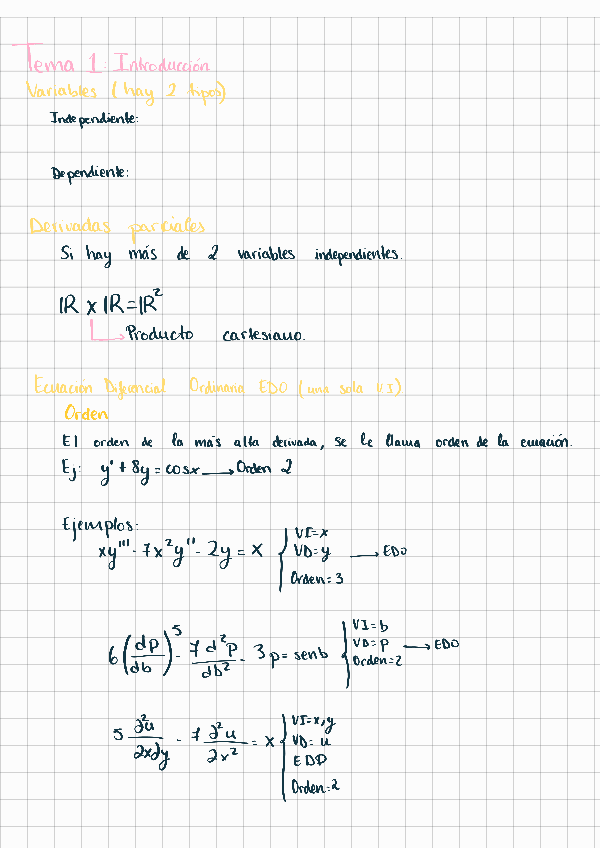 Tema 1: Introducción
Variables (hay 2 tipos)
Independiente:
Dependiente:
Derivadas parciales
Si hay más de 2 variables independientes.
IR x IR = IR²
Producto cartesiano.
Ecuación Diferencial Ordinaria EDO (una sola VI)
Orden
El orden de la más alta derivada, se le llama orden de la ecuación.
Ej: y' + 8y = cosx → Orden 2
Ejemplos:
xy''' - 7x²y'' - 2y = x { VI=x
VD=y → EDO
Orden=3
6(dp/db)⁵ - 7 d²p/db² - 3p = senb { VI=b
VD=p → EDO
Orden=2
5 ∂²u/∂x∂y - 7 ∂²u/∂x² = x { VI=x,y
VD=u
EDP
Orden=2